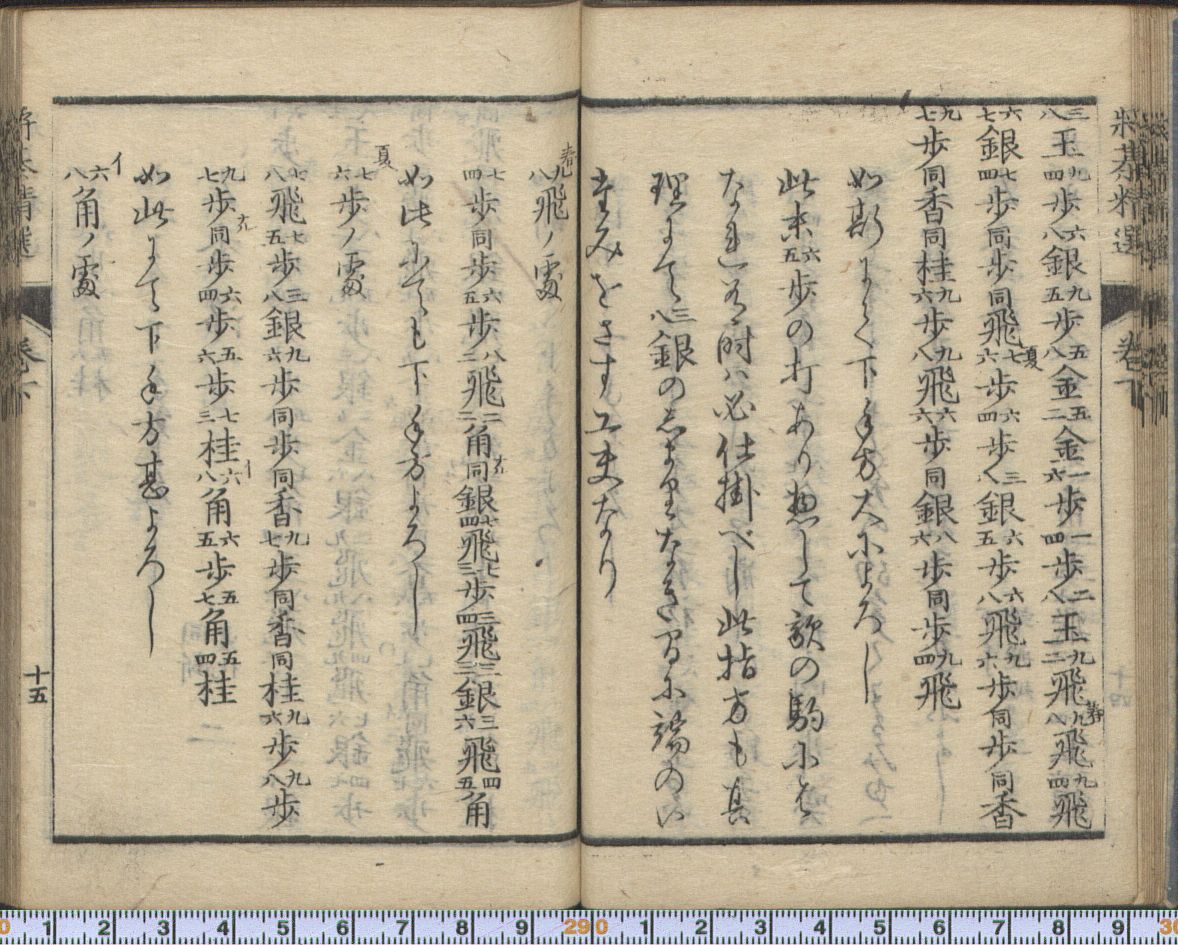 将棊精選
卷下
三八玉九四歩六八銀九五歩五八金五二金一六歩一四歩二八玉九二飛春九八飛九四飛
六七銀七四歩同歩同飛夏七六歩六四歩三八銀六五歩六八飛九六歩同歩同香
九七歩同香同桂九六歩九八飛六六歩同銀八六歩同歩九四飛
如斯して下手方大によろし
此末六五歩の打あり惣して敵の駒に
なき時ハ必仕掛べし此指方も其
理にて三八銀の
をさす工夫なり
春九八飛ノ処
七四歩同歩六五歩八二飛二二角同銀七四飛七三歩三四飛三三銀三六飛四五角
如此にても下手方よろし
夏七六歩ノ処
七八飛七五歩三八銀九六歩同歩同香九七歩同香同桂九六歩九八歩
九七歩同歩六四歩五六歩七三桂イ六八角六五歩五七角五四桂
如此にて下手方甚よろし
イ六八角ノ処
将棊精選
卷下
十五